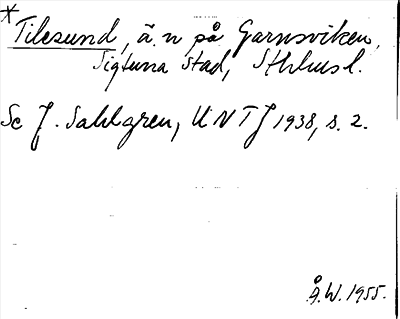 * Tilesund, ä. n på Garnsviken,
Sigtuna stad, Sthlms l.
Se J. Sahlgren, UNTJ 1938, s. 2.
Å.W. 1955.